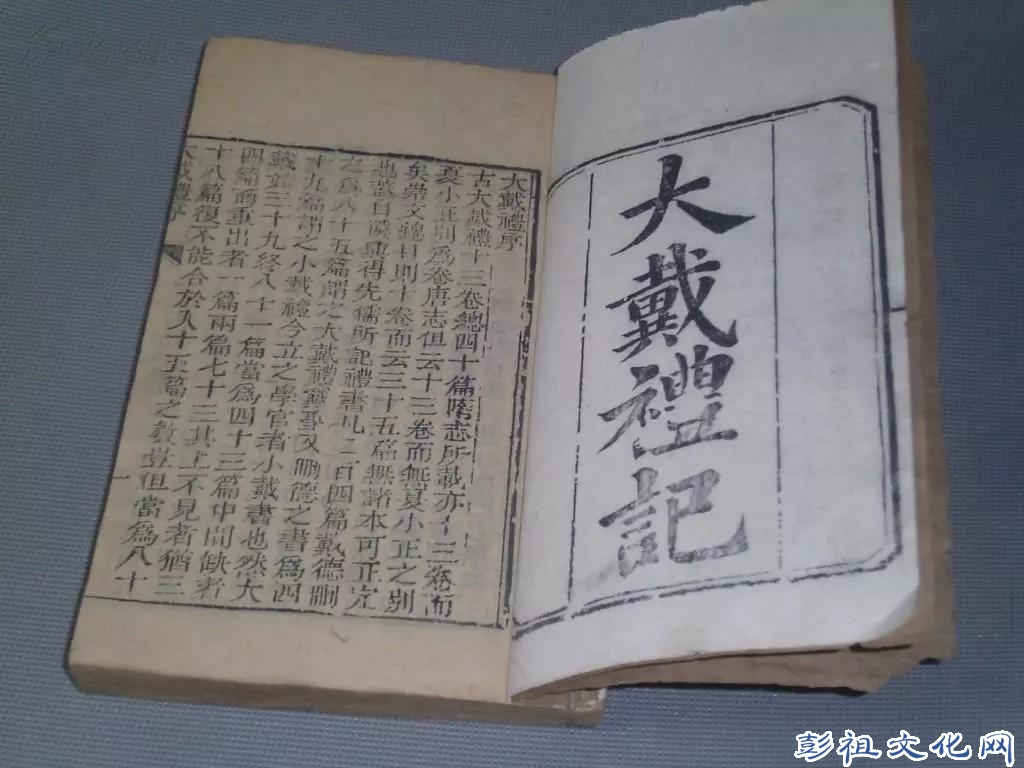 大戴禮記
大戴禮序
古大戴禮十三卷總四十篇隋志所載亦十三卷而
夏小正別為卷唐志但云十三卷而無夏小正之別
矣崇文總目則十卷而云三十五篇無諸本可正定
也蓋自漢興得先儒所記禮書凡二百四篇戴德刪
之為八十五篇謂之大戴禮戴聖又刪德之書為四
十九篇謂之小戴禮今立之學官者小戴書也然大
戴三十九終八十一篇當為四十三篇中間缺者
四篇而重出者一篇兩篇七十三其上不見者猶三
十八篇復不能合於八十五篇之數豈但當為八十
大戴禮序
彭祖文化网